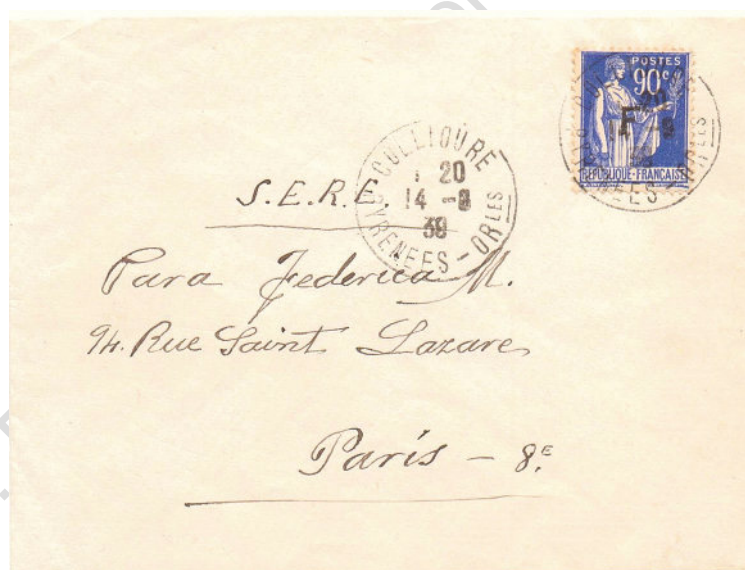 POSTES
90c
F
RÉPUBLIQUE-FRANÇAISE
COLLIOURE
20
14 -9
39
PYRENEES - ORLES
S.E.R.E.
Para Federica M.
94. Rue Saint Lazare
París - 8E.